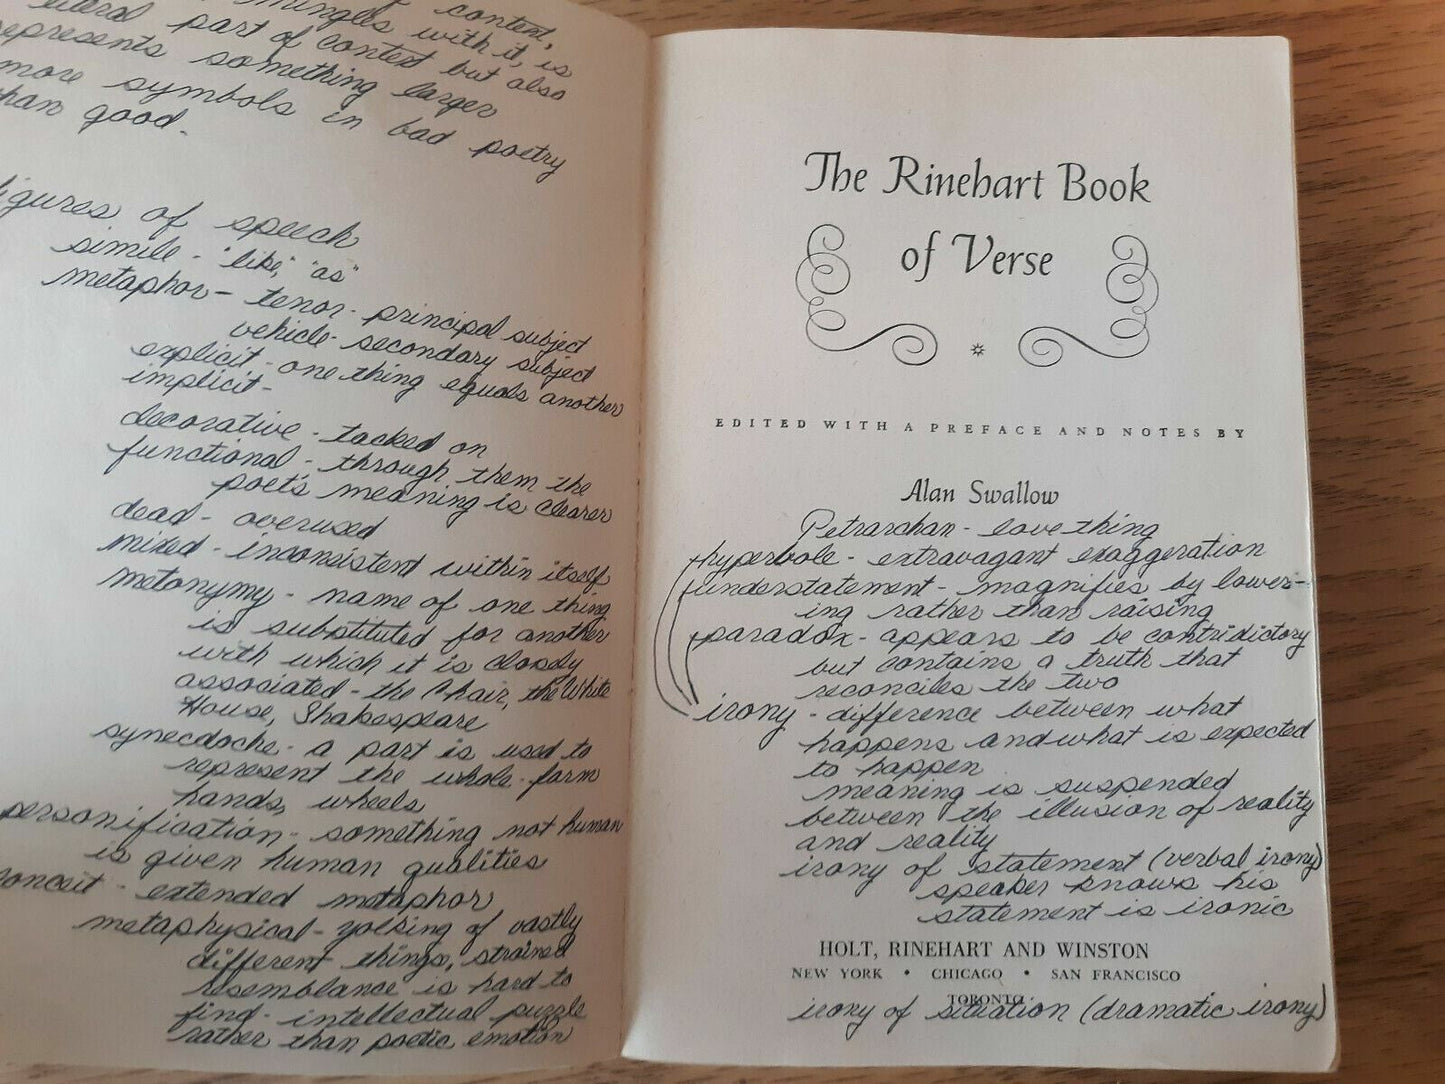 mingles with it, is
context,
literal part of context but also
represents something larger
more symbols in bad poetry
than good.
figures of speech
simile - "like," "as"
metaphor - tenor - principal subject
vehicle - secondary subject
explicit - one thing equals another
implicit -
decorative - tacked on
functional - through them the
poet's meaning is clearer
dead - overused
mixed - inconsistent within itself
metonymy - name of one thing
is substituted for another
with which it is closely
associated - the Chair, the White
House, Shakespeare
synecdoche - a part is used to
represent the whole - farm
hands, wheels
personification - something not human
is given human qualities
conceit - extended metaphor
metaphysical - yoking of vastly
different things, strained
resemblance is hard to
find - intellectual puzzle
rather than poetic emotion
The Rinehart Book
of Verse
EDITED WITH A PREFACE AND NOTES BY
Alan Swallow
Petrarchan - love thing
hyperbole - extravagant exaggeration
understatement - magnifies by lower-
ing rather than raising
paradox - appears to be contridictory
but contains a truth that
reconciles the two
irony - difference between what
happens and what is expected
to happen
meaning is suspended
between the illusion of reality
and reality
irony of statement (verbal irony)
speaker knows his
statement is ironic
HOLT, RINEHART AND WINSTON
NEW YORK • CHICAGO • SAN FRANCISCO
TORONTO
irony of situation (dramatic irony)